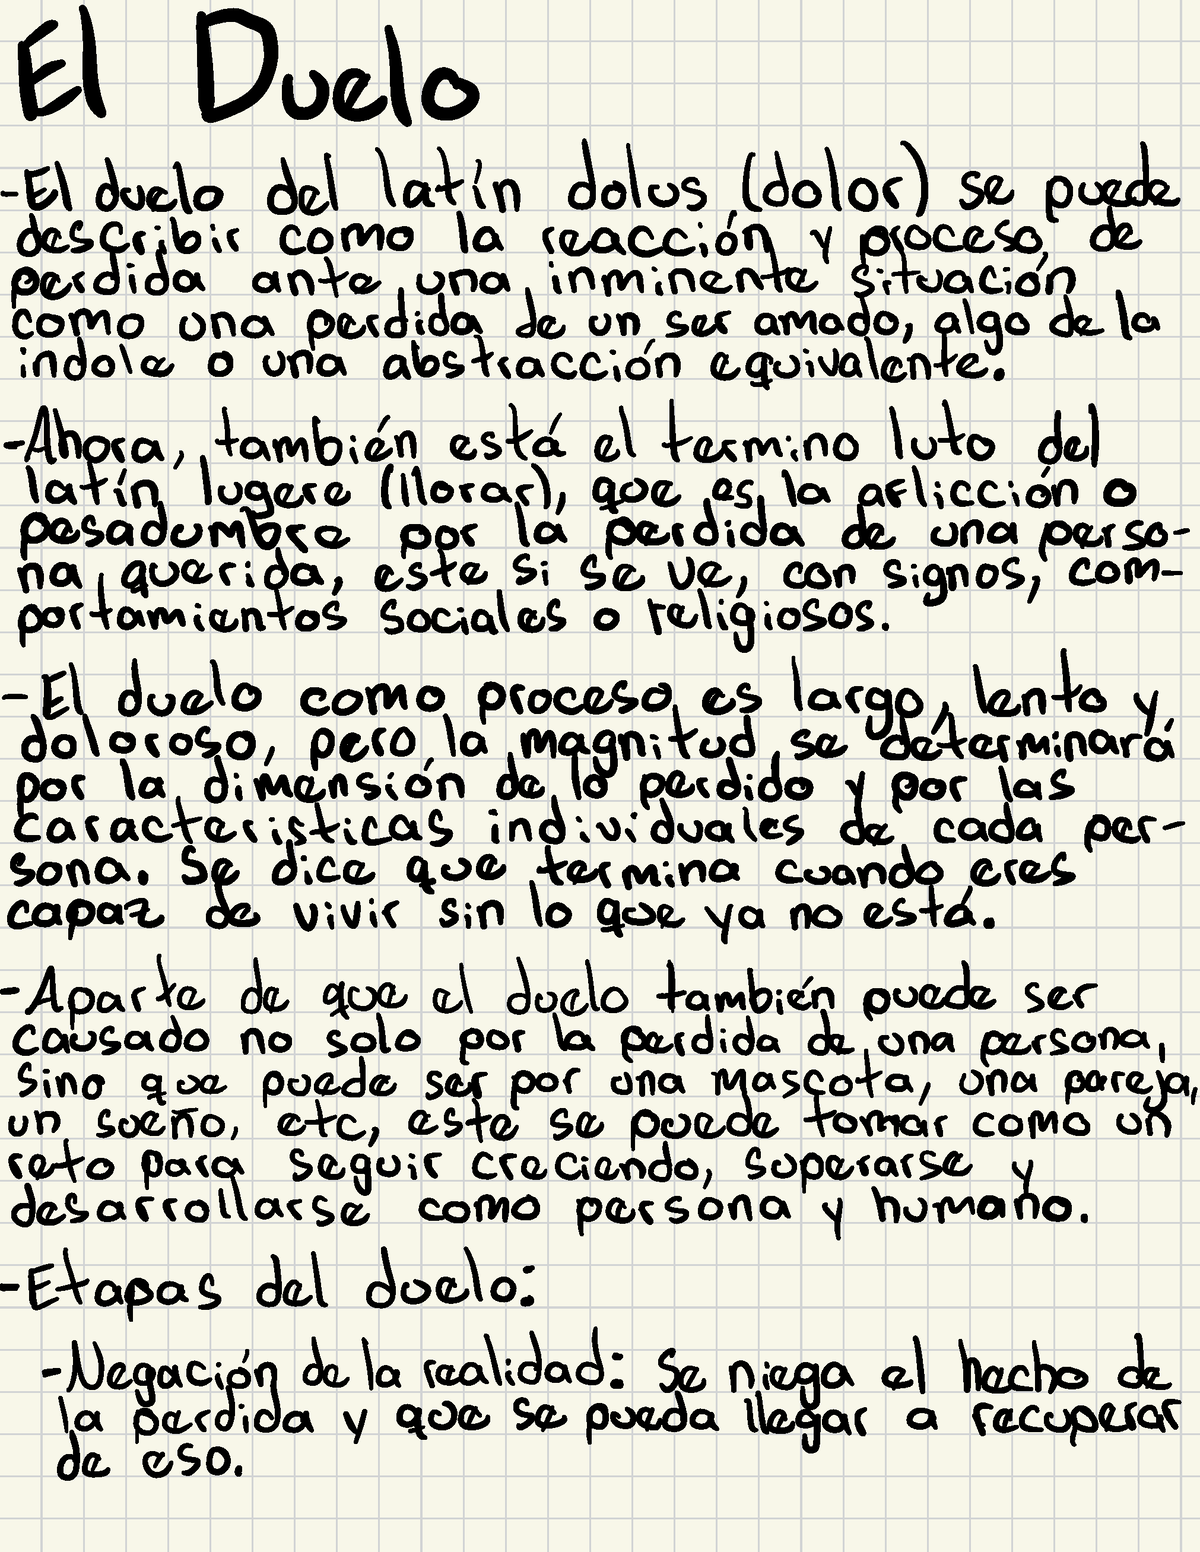 El Duelo
-El duelo del latín dolus (dolor) se puede
describir como la reacción y proceso de
perdida ante una inminente situación
como una perdida de un ser amado, algo de la
indole o una abstracción equivalente.
-Ahora, también está el termino luto del
latín lugere (llorar), que es la aflicción o
pesadumbre por la perdida de una perso-
na querida, este si se ve, con signos, com-
portamientos sociales o religiosos.
-El duelo como proceso es largo, lento y
doloroso, pero la magnitud se determinará
por la dimensión de lo perdido y por las
caracteristicas individuales de cada per-
sona. Se dice que termina cuando eres
capaz de vivir sin lo que ya no está.
-Aparte de que el duelo también puede ser
causado no solo por la perdida de una persona,
sino que puede ser por una mascota, una pareja,
un sueño, etc, este se puede tomar como un
reto para seguir creciendo, superarse y
desarrollarse como persona y humano.
-Etapas del duelo:
-Negación de la realidad: Se niega el hecho de
la perdida y que se pueda llegar a recuperar
de eso.